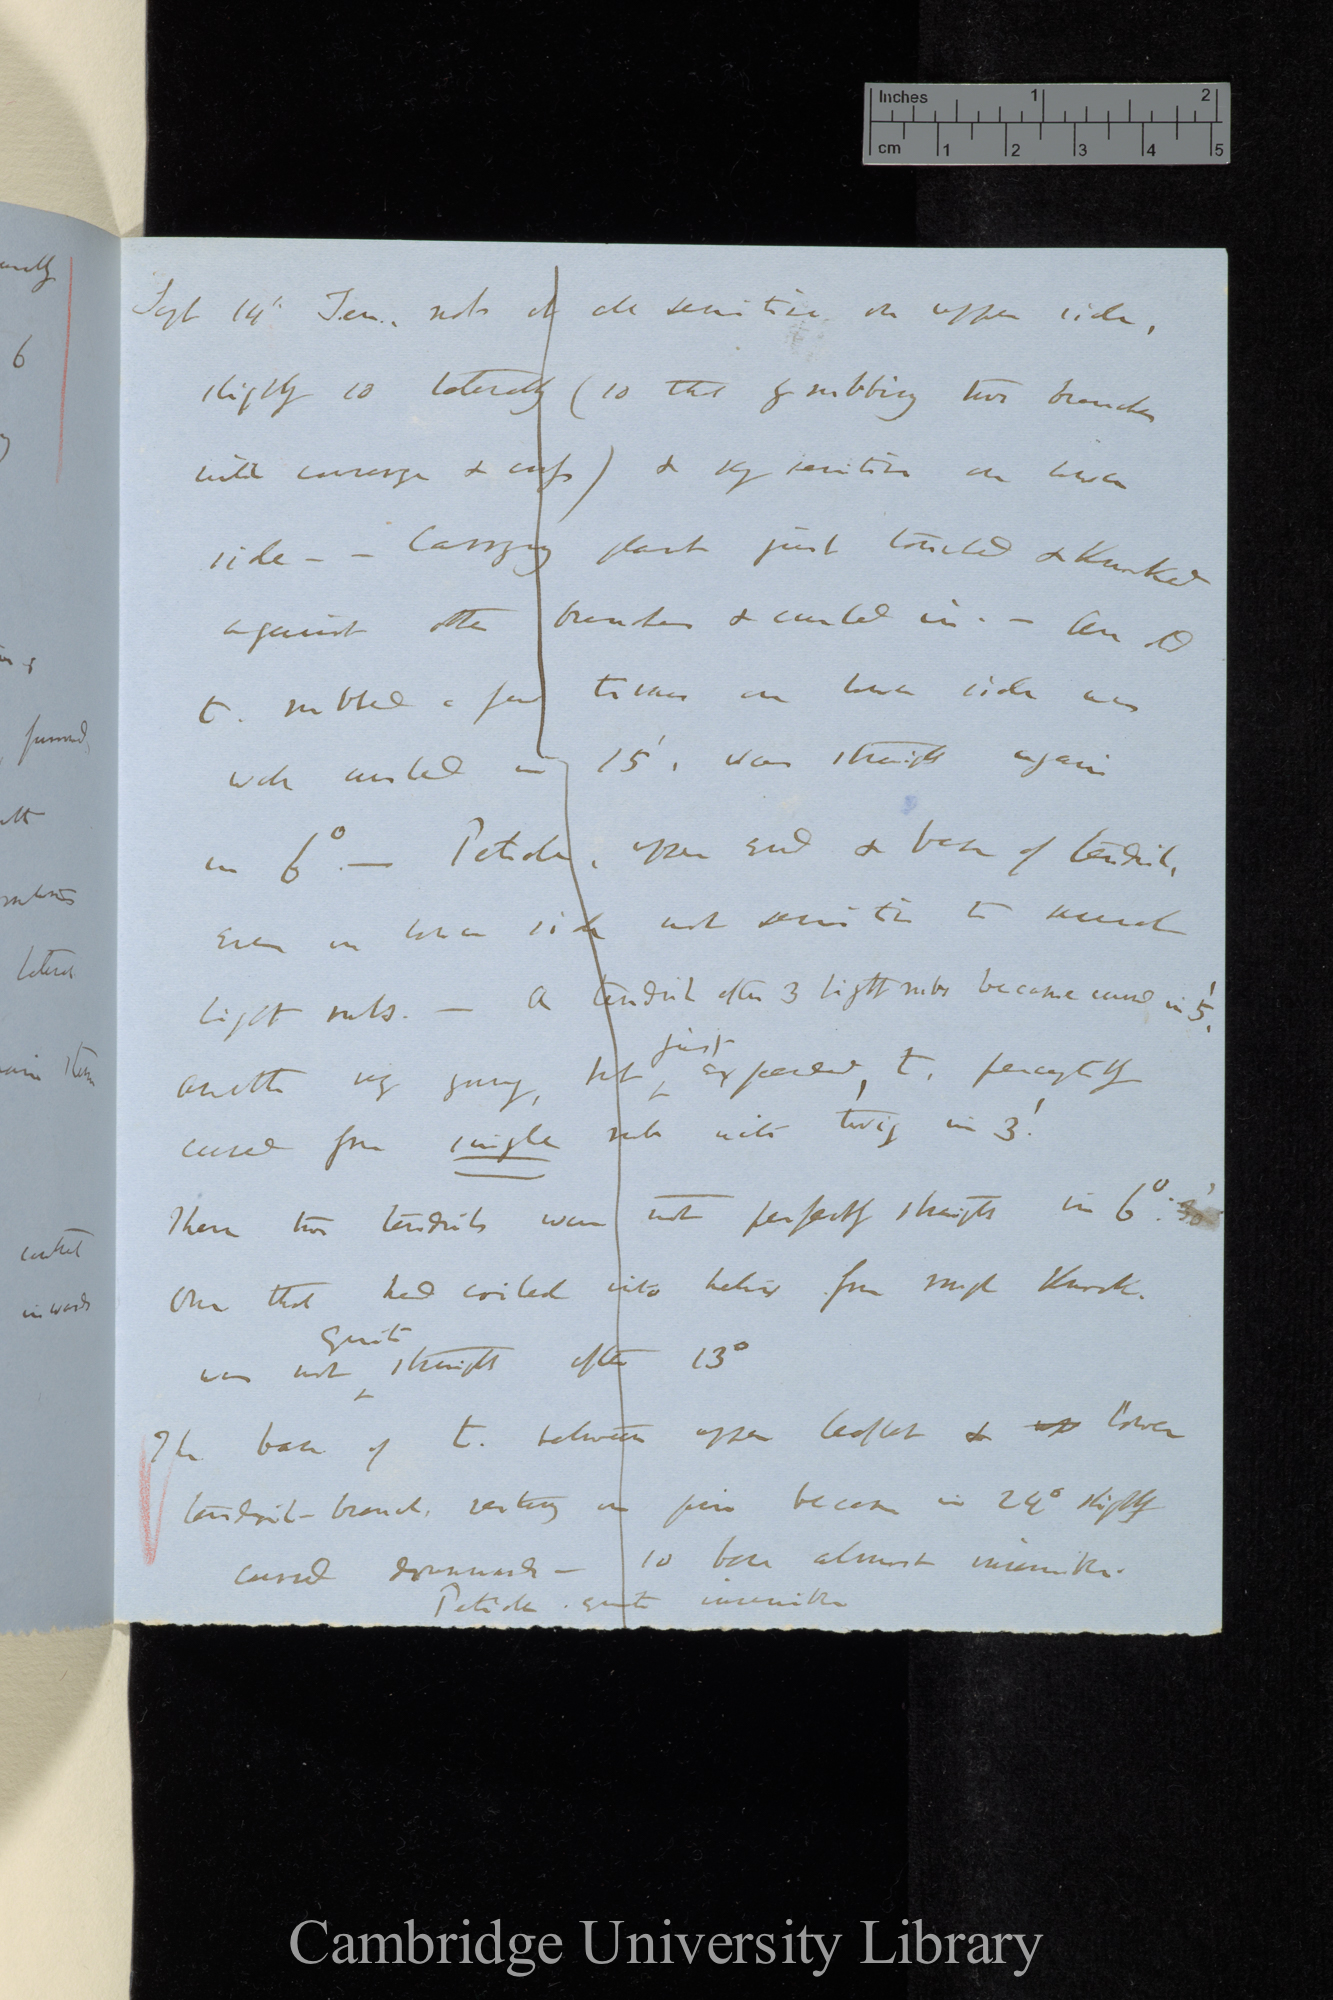 Inches 1 2
cm 1 2 3 4 5
Sept 14th Ten., not at all sensitive on upper side,
slightly so laterally (so that by rubbing two branches
will converge & cross) & very sensitive on lower
side — — Carrying plant just touched & knocked
against other branches & curled in. — An old
t. rubbed a few times on lower side was
well curled in 15', was straight again
in 6°. — Petiole, upper end & base of tendril,
even on lower side not sensitive to several
light rubs. — A tendril after 3 light rubs became curved in 5'.
another very young, but just expanded, t, perceptibly
curved from single rub with twig in 3'.
These two tendrils were not perfectly straight in 6°. 30'
One that had coiled into helix from rough knock.
was not quite straight after 13°
The base of t. between upper leaflet & up lower
tendril-branch, resting on pin became in 24° slightly
curved downwards — so base almost insensitive.
Petiole quite insensitive
6
lateral
main stem
inwards
Cambridge University Library